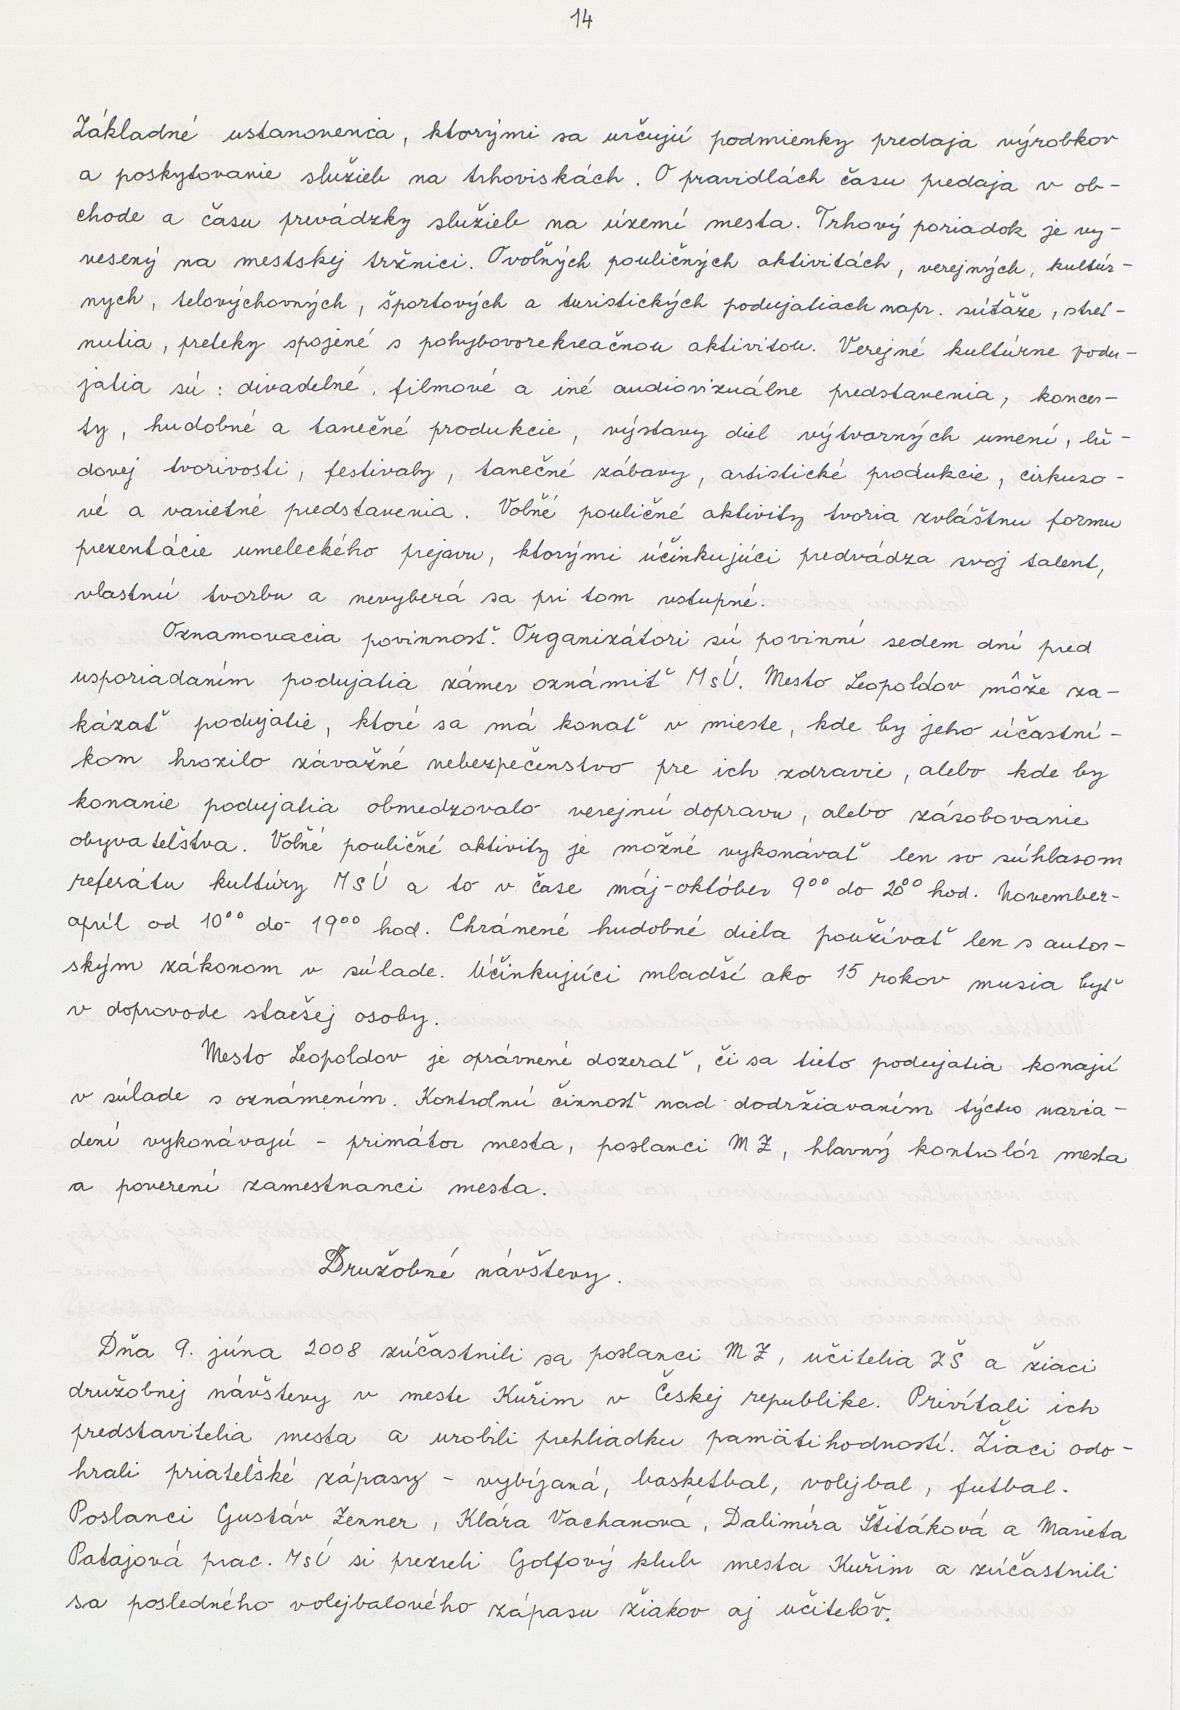 14
Základné ustanovenia, ktorými sa určujú podmienky predaja výrobkov
a poskytovanie služieb na trhoviskách. O pravidlách času predaja v ob-
chode a času prevádzky služieb na území mesta. Trhový poriadok je vy-
vesený na mestskej tržnici. O voľných pouličných aktivitách, verejných, kultúr-
nych, telovýchovných, športových a turistických podujatiach napr. súťaže, stret-
nutia, preteky spojené s pohybovorekreačnou aktivitou. Verejné kultúrne podu-
jatia sú: divadelné, filmové a iné audiovizuálne predstavenia, koncer-
ty, hudobné a tanečné produkcie, výstavy diel výtvarných umení, ľu-
dovej tvorivosti, festivaly, tanečné zábavy, artistické produkcie, cirkuso-
vé a varietné predstavenia. Voľné pouličné aktivity tvoria zvláštnu formu
prezentácie umeleckého prejavu, ktorými účinkujúci predvádza svoj talent,
vlastnú tvorbu a nevyberá sa pri tom vstupné.
Oznamovacia povinnosť. Organizátori sú povinní sedem dní pred
usporiadaním podujatia zámer oznámiť MsÚ. Mesto Leopoldov môže za-
kázať podujatie, ktoré sa má konať v mieste, kde by jeho účastní-
kom hrozilo závažné nebezpečenstvo pre ich zdravie, alebo kde by
konanie podujatia obmedzovalo verejnú dopravu, alebo zásobovanie
obyvateľstva. Voľné pouličné aktivity je možné vykonávať len so súhlasom
referátu kultúry MsÚ a to v čase máj-október 9⁰⁰ do 20⁰⁰ hod. November-
apríl od 10⁰⁰ do 19⁰⁰ hod. Chránené hudobné diela používať len s autor-
ským zákonom v súlade. Účinkujúci mladší ako 15 rokov musia byť
v doprovode staršej osoby.
Mesto Leopoldov je oprávnené dozerať, či sa tieto podujatia konajú
v súlade s oznámením. Kontrolnú činnosť nad dodržiavaním týchto naria-
dení vykonávajú - primátor mesta, poslanci MZ, hlavný kontrolór mesta
a poverení zamestnanci mesta.
Družobné návštevy.
Dňa 9. júna 2008 zúčastnili sa poslanci MZ, učitelia ZŠ a žiaci
družobnej návštevy v meste Kuřim v Českej republike. Privítali ich
predstavitelia mesta a urobili prehliadku pamätihodností. Žiaci odo-
hrali priateľské zápasy - vybíjaná, basketbal, volejbal, futbal.
Poslanci Gustáv Zenner, Klára Vachanová, Dalimíra Štitáková a Marieta
Patajová prac. MsÚ si prezreli Golfový klub mesta Kuřim a zúčastnili
sa posledného volejbalového zápasu žiakov aj učiteľov.